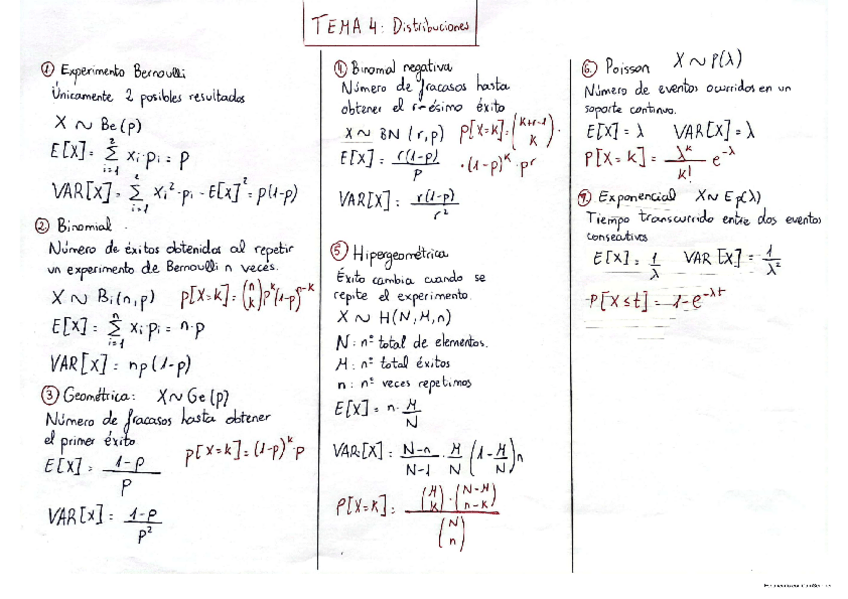 TEMA 4: Distribuciones
① Experimento Bernoulli
Únicamente 2 posibles resultados
X ~ Be(p)
E[X] = Σ_{i=1}^{2} xi · pi = p
VAR[X] = Σ_{i=1}^{2} xi² · pi - E[X]² = p(1-p)
② Binomial
Número de éxitos obtenidos al repetir
un experimento de Bernoulli n veces.
X ~ Bi(n,p) P[X=k] = (n k) p^k (1-p)^{n-k}
E[X] = Σ_{i=1}^{n} xi pi = n·p
VAR[X] = np(1-p)
③ Geométrica: X~Ge(p)
Número de fracasos hasta obtener
el primer éxito
E[X] = (1-p)/p P[X=k] = (1-p)^k · p
VAR[X] = (1-p)/p²
④ Binomal negativa
Número de fracasos hasta
obtener el r-ésimo éxito
X ~ BN (r,p) P[X=k] = (k+r-1 k) ·
E[X] = r(1-p)/p · (1-p)^k · p^r
VAR[X] = r(1-p)/r²
⑤ Hipergeométrica
Éxito cambia cuando se
repite el experimento.
X ~ H(N,M,n)
N: nº total de elementos.
M: nº total éxitos
n: nº veces repetimos
E[X] = n · M/N
VAR[X] = (N-n)/(N-1) · M/N (1-M/N)n
P[X=k] = (M k) · (N-M n-k) / (N n)
⑥ Poisson X ~ P(λ)
Número de eventos ocurridos en un
soporte continuo.
E[X] = λ VAR[X] = λ
P[X=k] = λ^k/k! e^{-λ}
⑦ Exponencial X~Ep(λ)
Tiempo transcurrido entre dos eventos
conseativos
E[X] = 1/λ VAR[X] = 1/λ²
P[X≤t] = 1-e^{-λt}